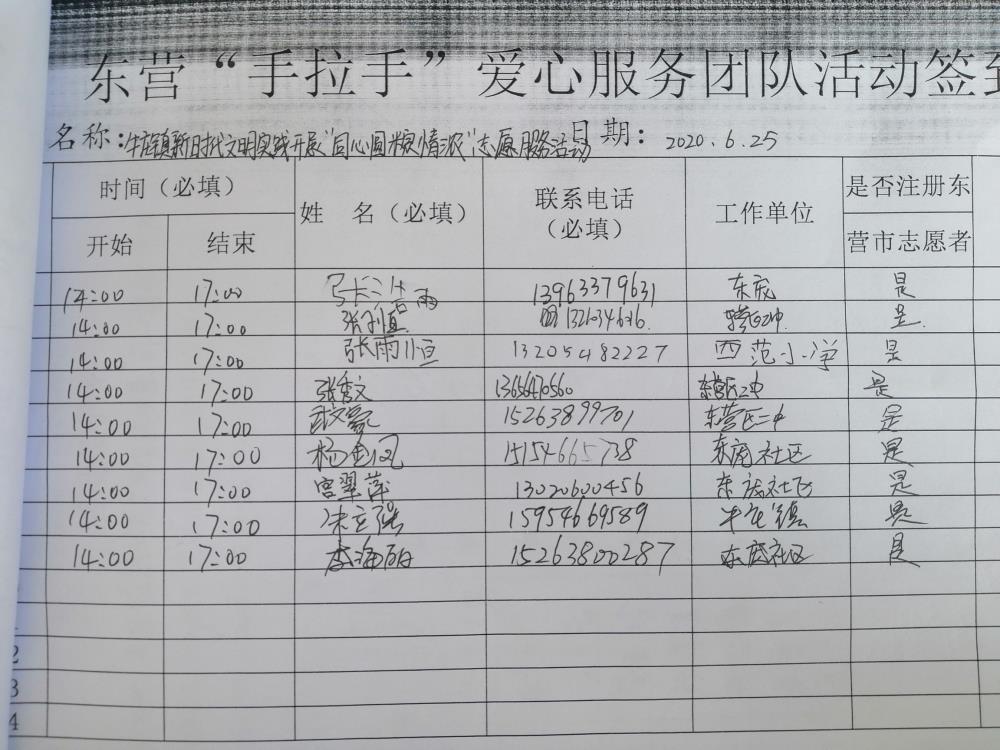 东营“手拉手”爱心服务团队活动签到
名称：牛庄镇新时代文明实践开展“同心圆 粽情浓”志愿服务活动 日期：2020.6.25
时间（必填） 姓 名（必填） 联系电话（必填） 工作单位 是否注册东营市志愿者
开始 结束
14:00 17:00 雨 13963379631 是
14:00 17:00 张 是
14:00 17:00 张雨恒 13205482227 西范小学 是
14:00 17:00 张秀文 13656470560 东营区二中 是
14:00 17:00 15263899701 东营区二中 是
14:00 17:00 杨金凤 15154665738 社区 是
14:00 17:00 宫翠萍 13020600456 社区 是
14:00 17:00 宋立强 15954669589 牛庄镇 是
14:00 17:00 李海丽 15263800287 社区 是
2
3
4